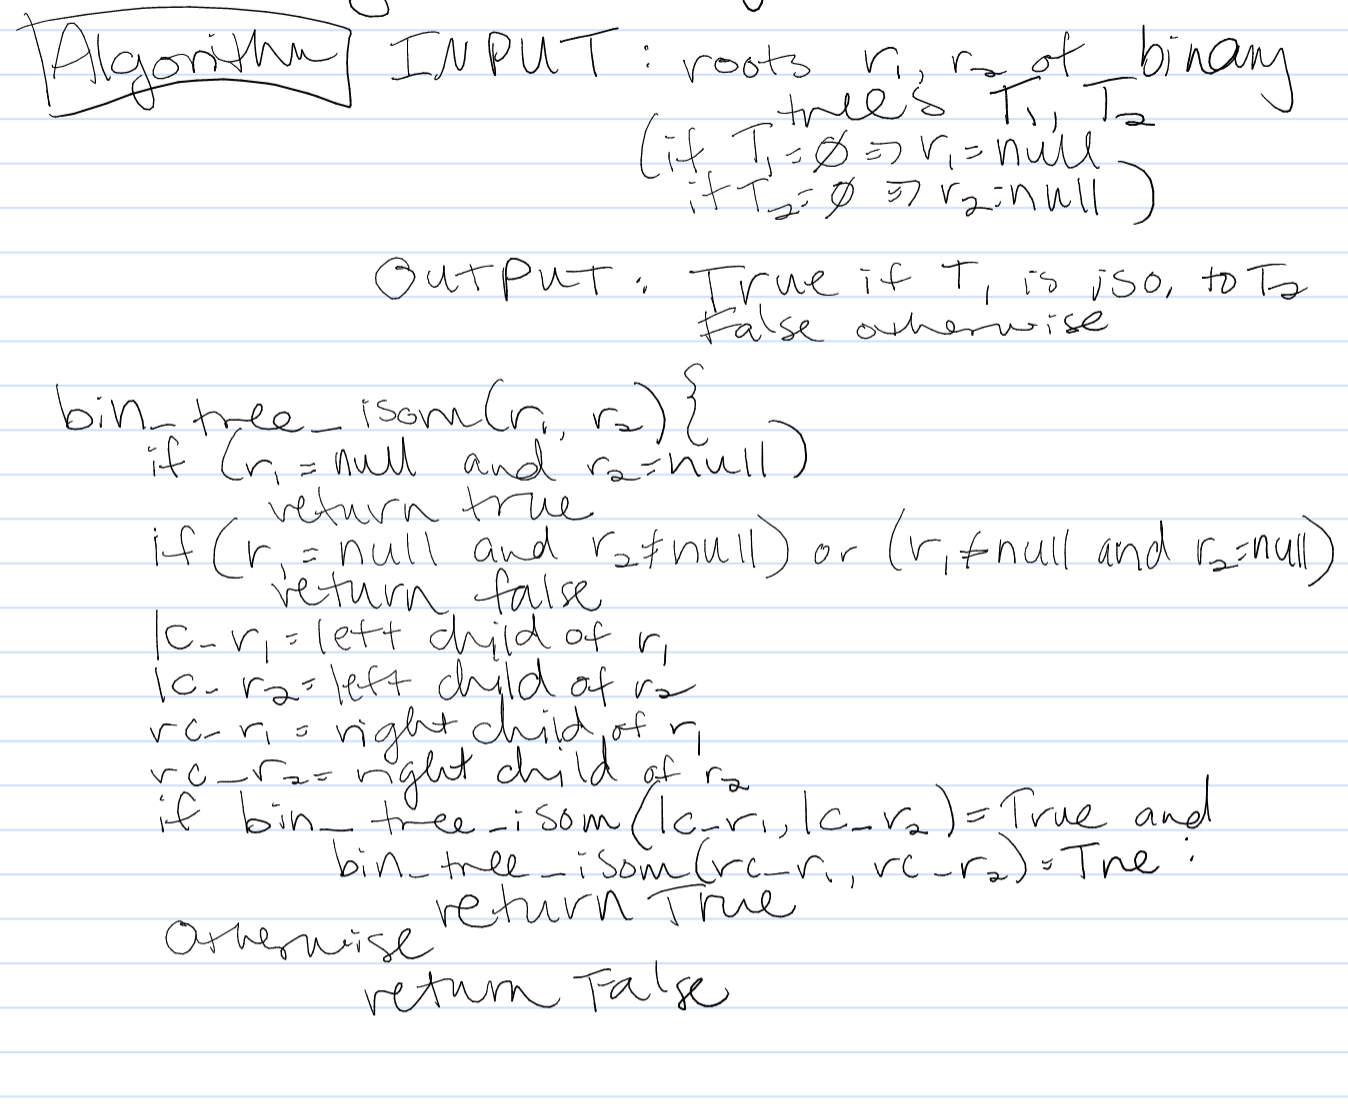 Algorithm INPUT: roots r₁, r₂ of binary
trees T₁, T₂
(if T₁=∅ ⇒ r₁=null
if T₂=∅ ⇒ r₂=null)
OUTPUT: True if T₁ is iso. to T₂
False otherwise
bin_tree_isom(r₁, r₂){
if (r₁=null and r₂=null)
return true
if (r₁=null and r₂≠null) or (r₁≠null and r₂=null)
return false
lc_r₁=left child of r₁
lc_r₂=left child of r₂
rc_r₁=right child of r₁
rc_r₂=right child of r₂
if bin_tree_isom(lc_r₁, lc_r₂)=True and
bin_tree_isom(rc_r₁, rc_r₂)=True:
return True
Otherwise
return False